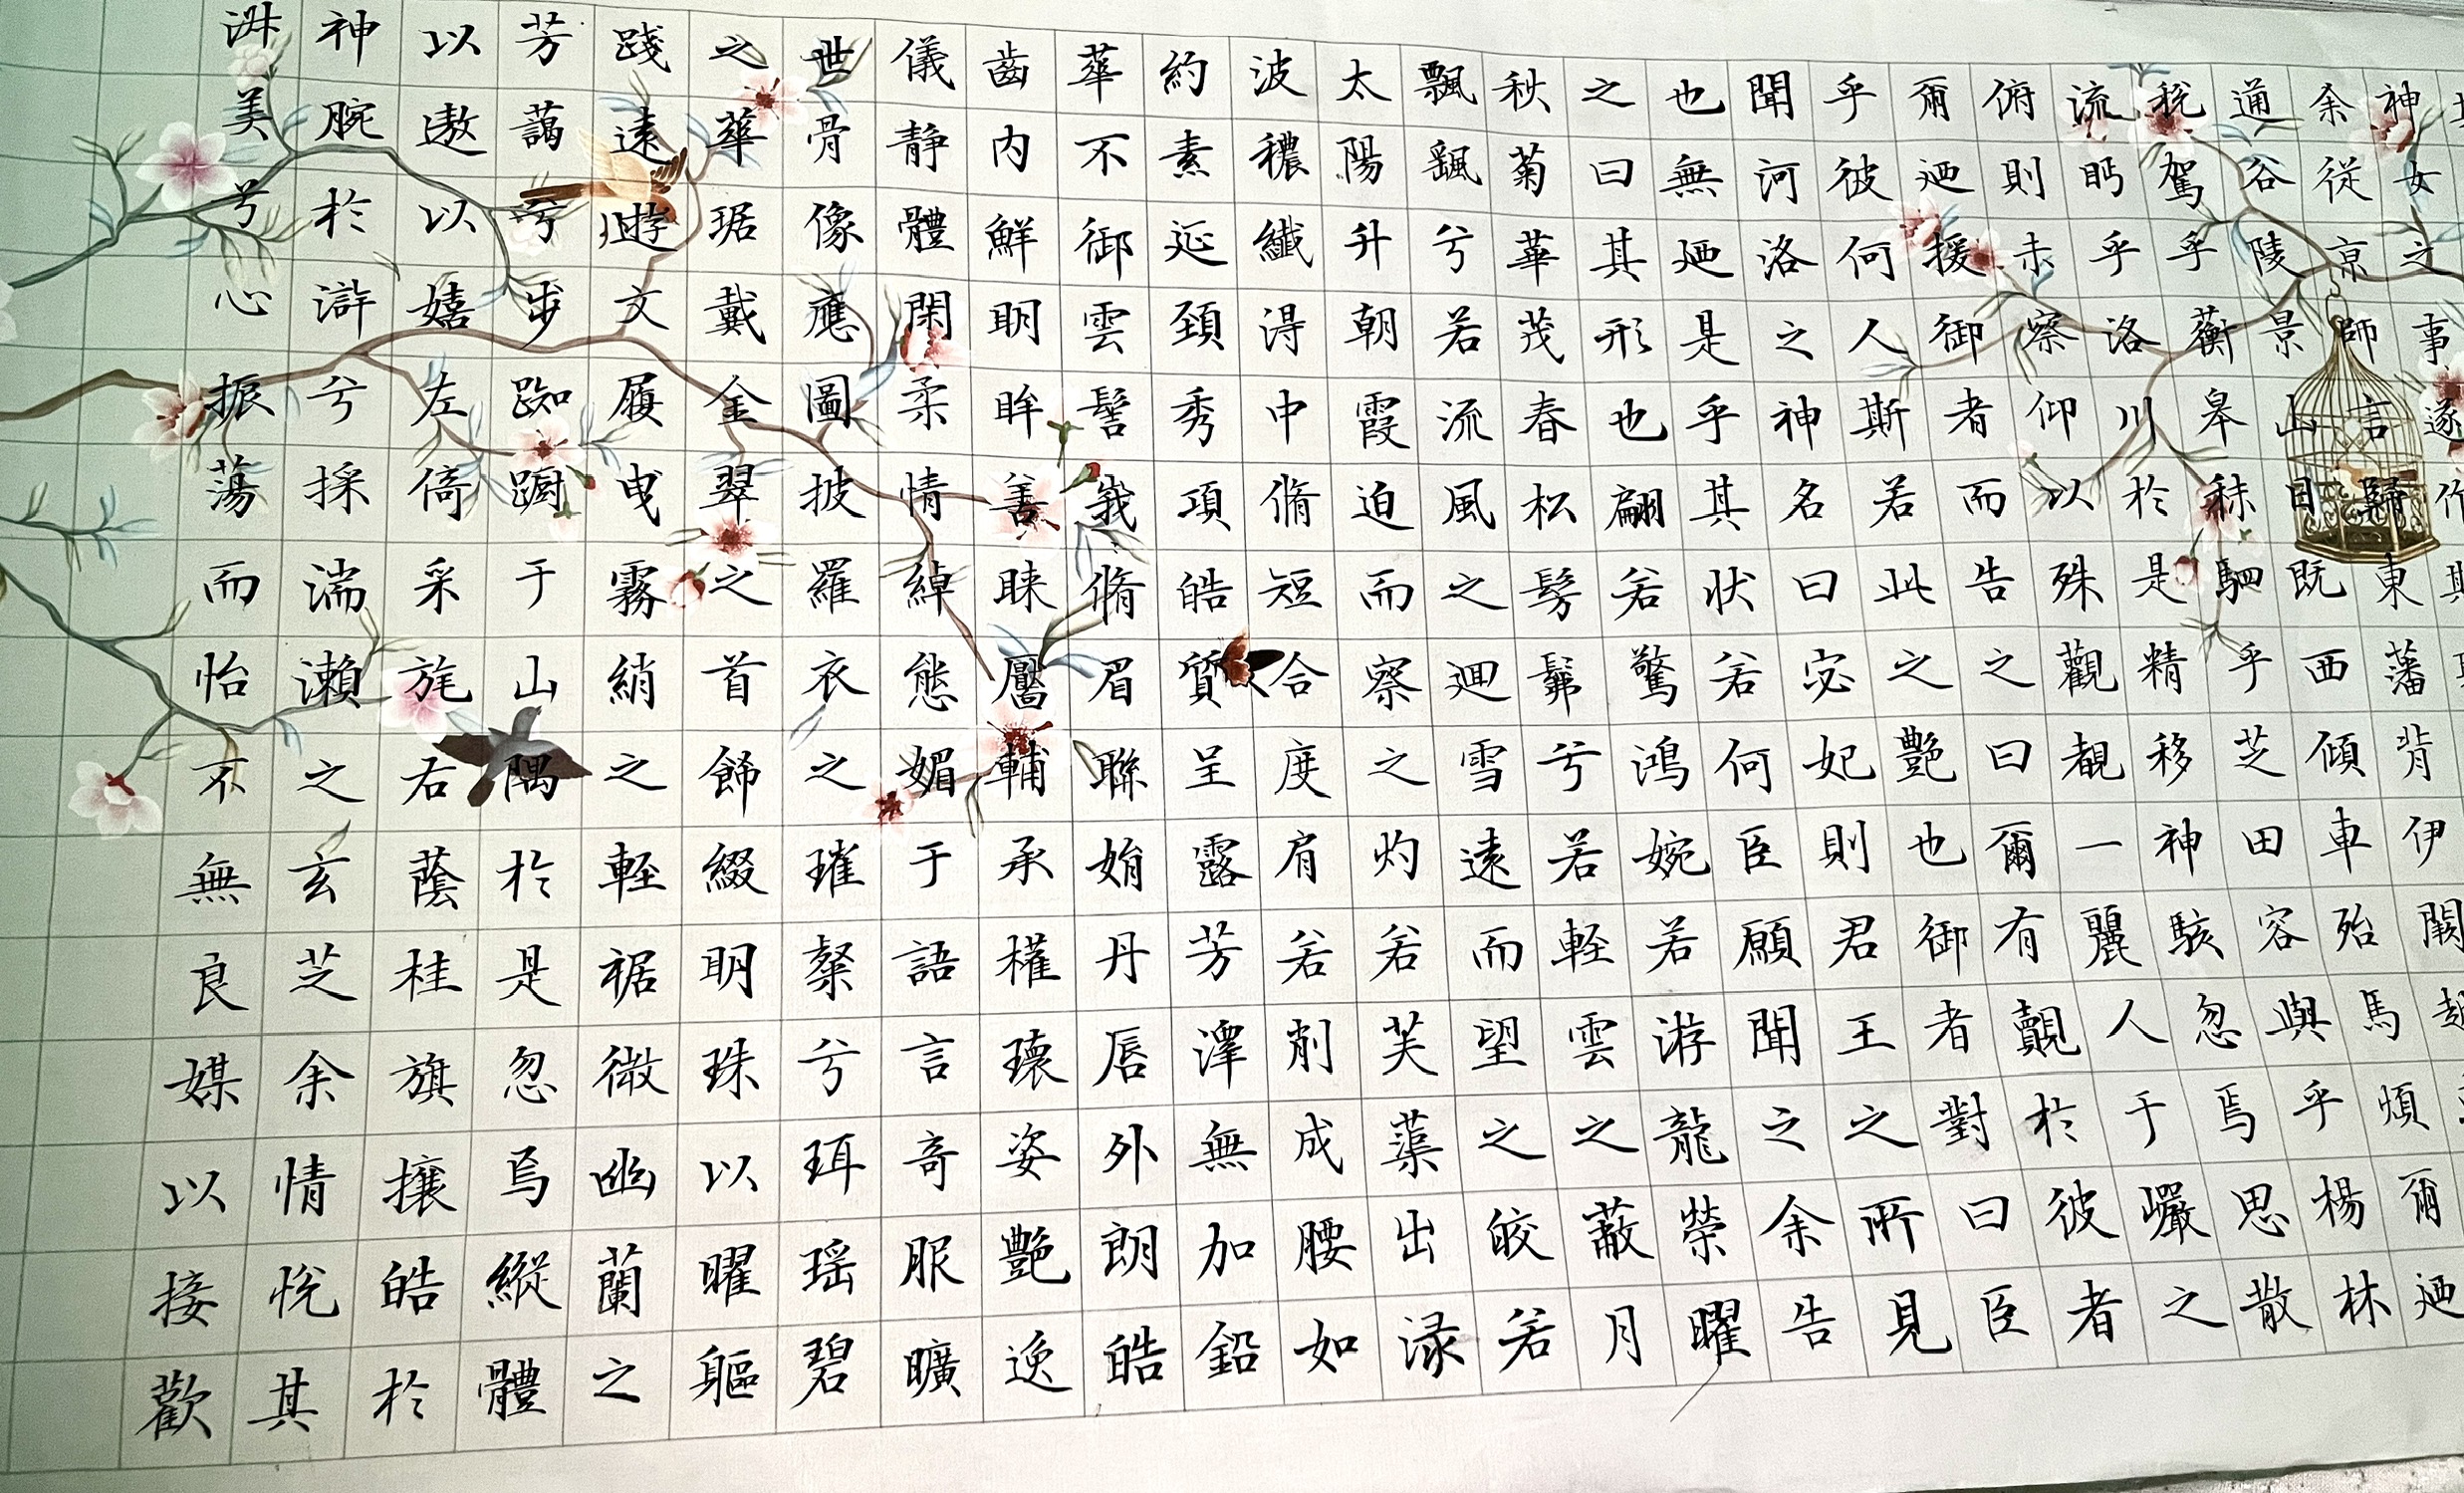 神女之事遂作
余從京師言歸東藩背伊闕越
通谷陵景山日既西傾車殆馬煩爾迺
税駕乎蘅皋秣駟乎芝田容與乎楊林
流眄乎洛川於是精移神駭忽焉思散
俯則未察仰以殊觀覩一麗人于巖之
爾迺援御者而告之曰爾有覿於彼者
乎彼何人斯若此之艷也御者對曰臣
聞河洛之神名曰宓妃則君王之所見
也無迺是乎其狀若何臣願聞之余告
之曰其形也翩若驚鴻婉若游龍榮曜
秋菊華茂春松髣髴兮若輕雲之蔽月
飄飖兮若流風之迴雪遠而望之皎若
太陽升朝霞迫而察之灼若芙蕖出淥
波穠纖得中脩短合度肩若削成腰如
約素延頸秀項皓質呈露芳澤無加鉛
華不御雲髻峩:脩眉聯娟丹唇外朗皓
齒內鮮明眸善睞靨輔承權瓌姿艷逸
儀静體閑柔情綽態媚于語言奇服曠
世骨像應圖披羅衣之璀粲兮珥瑤碧
之華琚戴金翠之首飾綴明珠以曜軀
踐遠遊文履曳霧綃之輕裾微幽蘭之
芳藹兮步踟躕于山隅於是忽焉縱體
以遨以嬉左倚采旄右蔭桂旗攘皓於
神腕於滸兮採湍瀨之玄芝余情悅其
淑美兮心振蕩而怡不無良媒以接歡